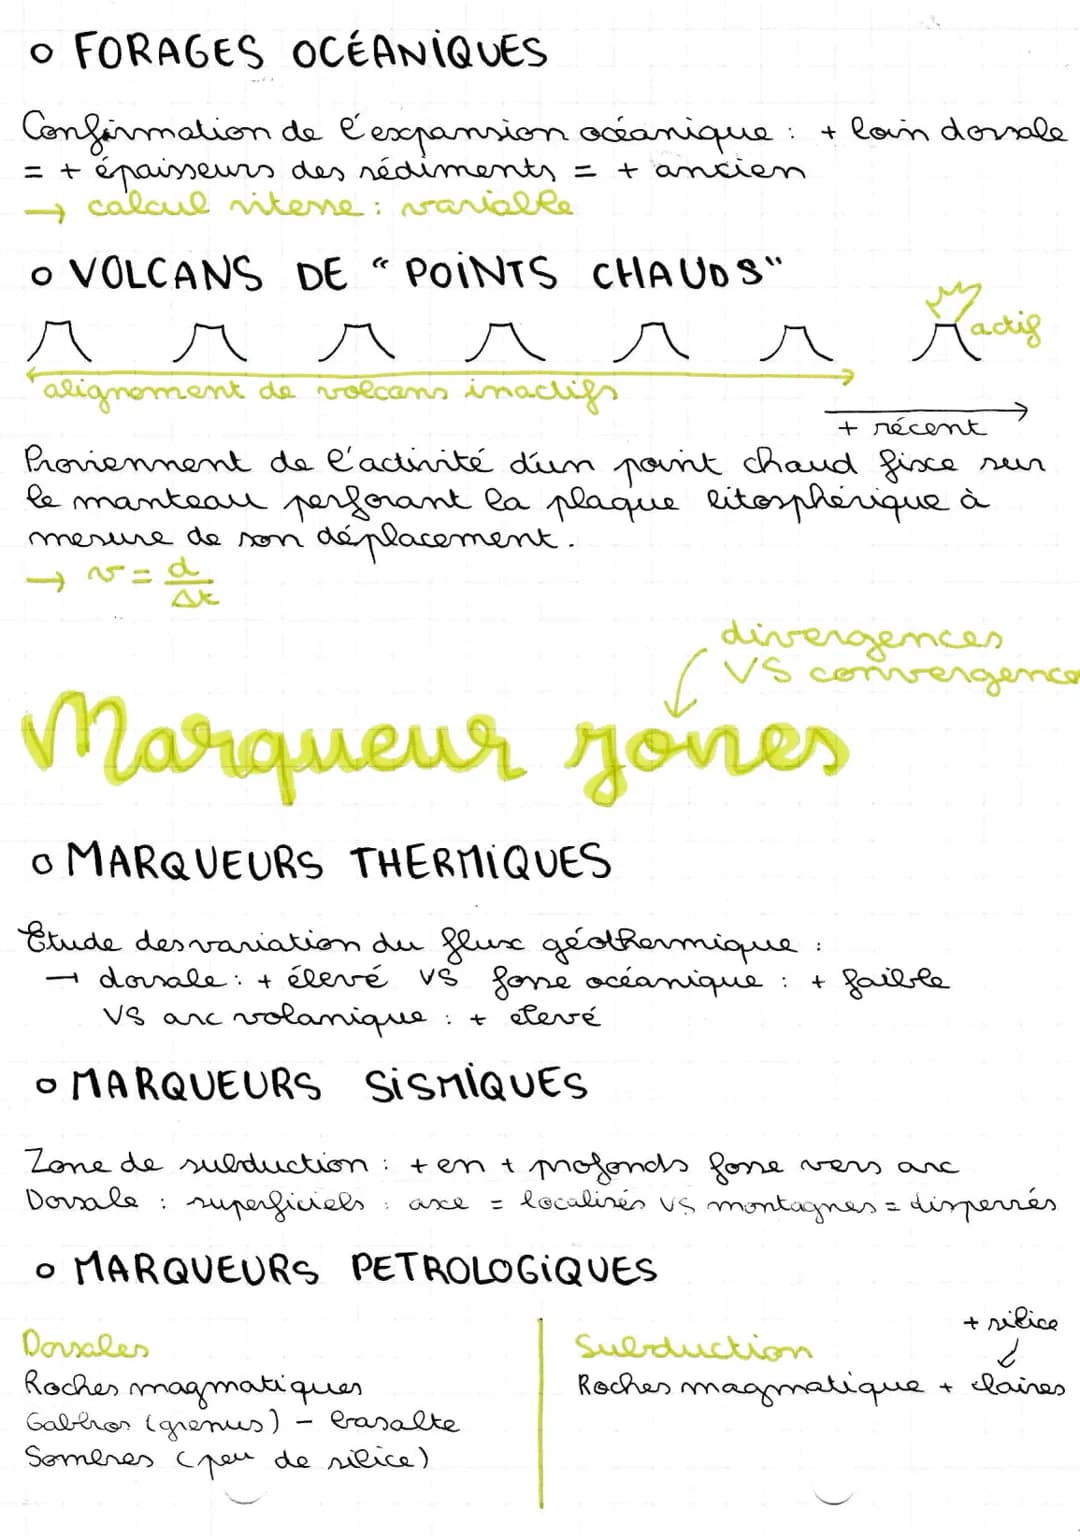 o FORAGES OCÉANIQUES
Confirmation de l'expansion océanique : + loin dorsale
= + épaisseurs des sédiments = + ancien
→ calcul vitesse : variable
o VOLCANS DE "POINTS CHAUDS"
actif
alignement de volcans inactifs
+ récent
Proviennent de l'activité d'un point chaud fixe sur
le manteau perforant la plaque litosphérique à
mesure de son déplacement.
→ v = d/Δt
divergences
VS convergence
Marqueur zones
o MARQUEURS THERMIQUES
Etude des variation du flux géothermique :
→ dorsale : + élevé VS fosse océanique : + faible
VS arc volanique : + élevé
o MARQUEURS SISMIQUES
Zone de subduction : + en + profonds fosse vers arc
Dorsale : superficiels : axe = localisés VS montagnes = dispersés
o MARQUEURS PETROLOGIQUES
+ silice
Dorsales
Subduction
Roches magmatiques
Roches magmatique + claires
Gabbros (grenus) - basalte
Sombres (peu de silice)